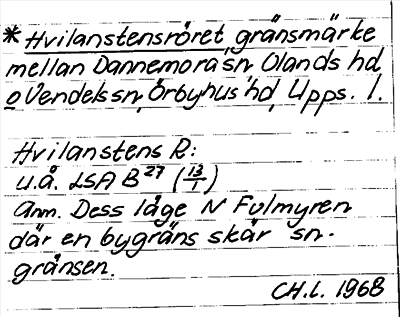 * Hvilanstensröret, gränsmärke
mellan Dannemora sn, Olands hd
o Vendels sn, Örbyhus hd, Upps. l.
Hvilanstens R:
u.å. LSA B 27 (13/1)
Anm. Dess läge N Fulmyren
där en bygräns skär sn-
gränsen.
CH.L. 1968